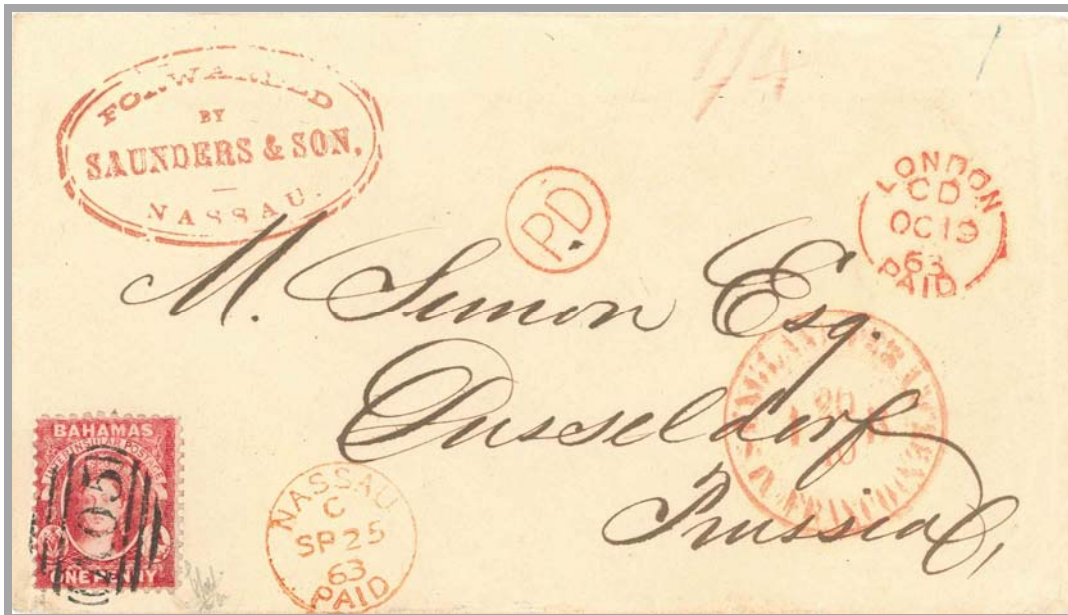 FORWARDED
BY
SAUNDERS & SON,
NASSAU.
1/4
PD
LONDON
CD
OC 19
63
PAID
M. Simon Esq.
Dusseldorf
Prussia
BAHAMAS
INTERINSULAR POSTAGE
B05
ONE PENNY
NASSAU
C
SP 25
63
PAID
ENGLAND PER
20
10
FRANCO